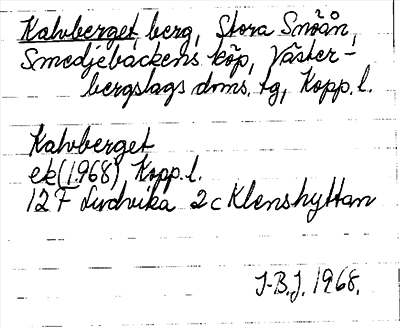 Kalvberget, berg, Stora Snöån,
Smedjebackens köp, Väster-
bergslags doms. tg, Kopp. l.
Kalvberget
ek (1968) Kopp. l.
12 F Ludvika 2 c Klenshyttan
J-B.J. 1968.